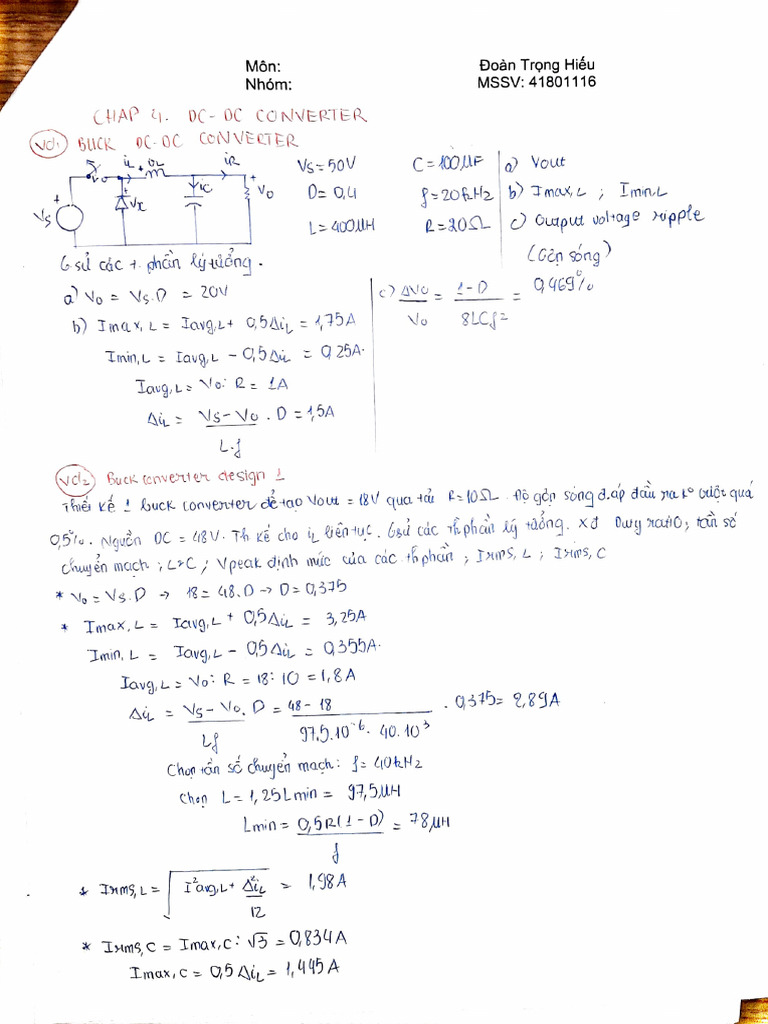 Môn: Đoàn Trọng Hiếu
Nhóm: MSSV: 41801116
CHAP 4. DC-DC CONVERTER
Vd1 BUCK DC-DC CONVERTER
iL + vL - iR
VS = 50V C = 100μF a) Vout
Vx iC Vo
D = 0,4 f = 20kHz b) Imax,L ; Imin,L
Vs
L = 400μH R = 20Ω c) Output voltage ripple
(Gợn sóng)
Gsử các t. phần lý tưởng.
a) Vo = Vs.D = 20V
c) ΔVo/Vo = 1-D/8LCf² = 0,469%
b) Imax,L = Iavg,L + 0,5ΔiL = 1,75A
Imin,L = Iavg,L - 0,5ΔiL = 0,25A.
Iavg,L = Vo : R = 1A
ΔiL = Vs-Vo/L.f . D = 1,5A
Vd2 Buck converter design 1
Thiết kế 1 buck converter để tạo Vout = 18V qua tải R=10Ω. Độ gợn sóng đ.áp đầu ra k° vượt quá
0,5%. Nguồn DC = 48V. Th kế cho iL liên tục. Gsử các thphần lý tưởng. Xđ Duty ratio; tần số
chuyển mạch ; L&C ; Vpeak định mức của các thphần ; Irms,L ; Irms,C
* Vo = Vs.D → 18 = 48.D → D = 0,375
* Imax,L = Iavg,L + 0,5ΔiL = 3,25A
Imin,L = Iavg,L - 0,5ΔiL = 0,355A.
Iavg,L = Vo : R = 18 : 10 = 1,8A
ΔiL = Vs-Vo/Lf . D = 48-18/97,5.10⁻⁶.40.10³ . 0,375 = 2,89A
Chọn tần số chuyển mạch : f = 40kHz
Chọn L = 1,25Lmin = 97,5μH
Lmin = 0,5R(1-D)/f = 78μH
* Irms,L = √I²avg,L + Δi²L/12 = 1,98A
* Irms,C = Imax,C : √3 = 0,834A
Imax,C = 0,5ΔiL = 1,445A